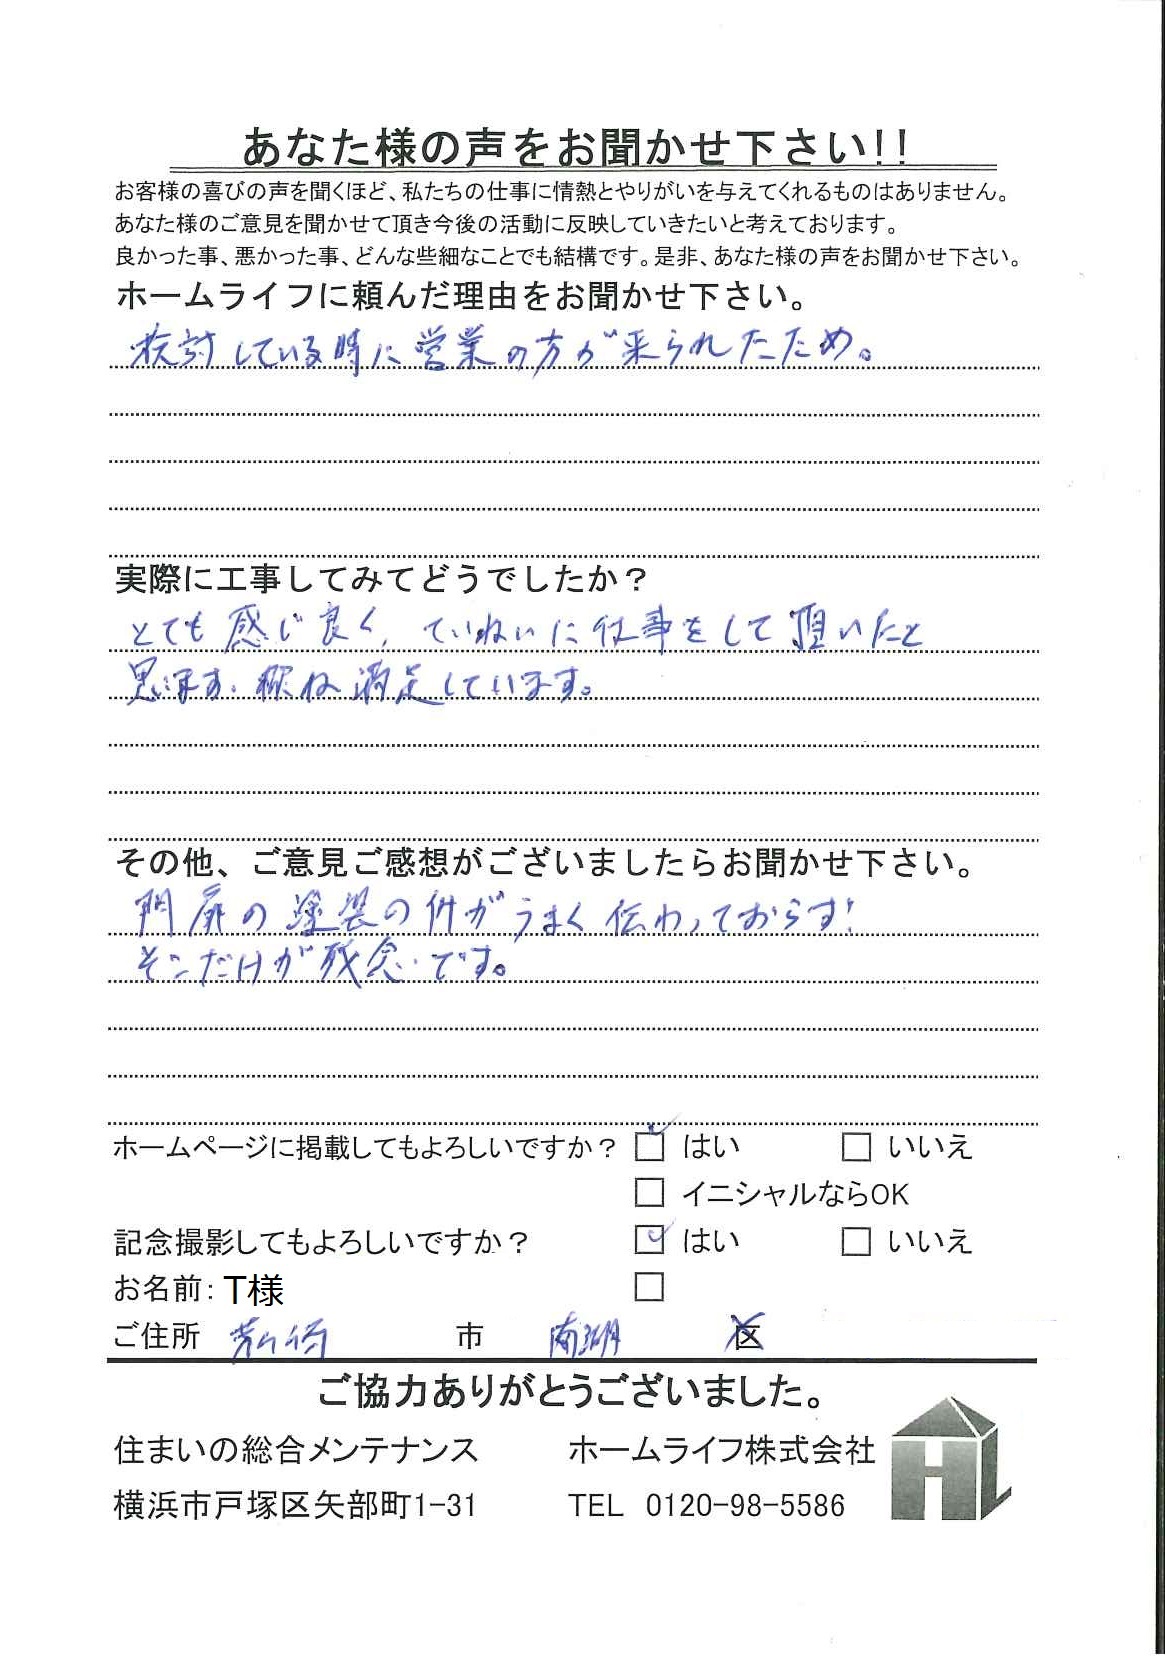 あなた様の声をお聞かせ下さい!!
お客様の喜びの声を聞くほど、私たちの仕事に情熱とやりがいを与えてくれるものはありません。
あなた様のご意見を聞かせて頂き今後の活動に反映していきたいと考えております。
良かった事、悪かった事、どんな些細なことでも結構です。是非、あなた様の声をお聞かせ下さい。
ホームライフに頼んだ理由をお聞かせ下さい。
検討している時に営業の方が来られたため。
実際に工事してみてどうでしたか？
とても感じ良く、ていねいに仕事をして頂いたと
思います。概ね満足しています。
その他、ご意見ご感想がございましたらお聞かせ下さい。
門扉の塗装の件がうまく伝わっておらず!
そこだけが残念です。
ホームページに掲載してもよろしいですか？ ☑ はい □ いいえ
□ イニシャルならOK
記念撮影してもよろしいですか？ ☑ はい □ いいえ
お名前：T様 □
ご住所 茅ヶ崎 市 南湖 区
ご協力ありがとうございました。
住まいの総合メンテナンス ホームライフ株式会社
横浜市戸塚区矢部町1-31 TEL 0120-98-5586
HL